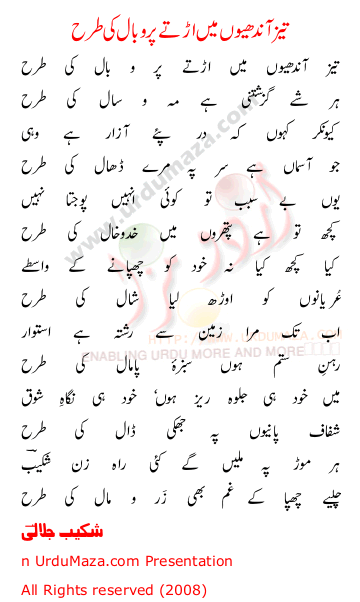 تیز آندھیوں میں اڑتے پر و بال کی طرح
تیز آندھیوں میں اڑتے پر و بال کی طرح
ہر شے گزشتنی ہے مہ و سال کی طرح
کیونکر کہوں کہ در پئے آزار ہے وہی
جو آسماں ہے سر پہ مرے ڈھال کی طرح
یوں بے سبب تو کوئی انہیں پوجتا نہیں
کچھ تو ہے پتھروں میں خدوخال کی طرح
کیا کچھ کیا نہ خود کو چھپانے کے واسطے
عُریانیوں کو اوڑھ لیا شال کی طرح
اب تک مرا زمین سے رشتہ ہے استوار
رہنِ ستم ہوں سبزۂ پامال کی طرح
میں خود ہی جلوہ ریز ہوں، خود ہی نگاہِ شوق
شفاف پانیوں پہ جھکی ڈال کی طرح
ہر موڑ پہ ملیں گے کئی راہ زن شکیبؔ
چلیے چھپا کے غم بھی زَر و مال کی طرح
شکیب جلالی
n UrduMaza.com Presentation
All Rights reserved (2008)
www.urdumaza.com
HTTP://WWW.URDUMAZA.COM
ENABLING URDU MORE AND MORE